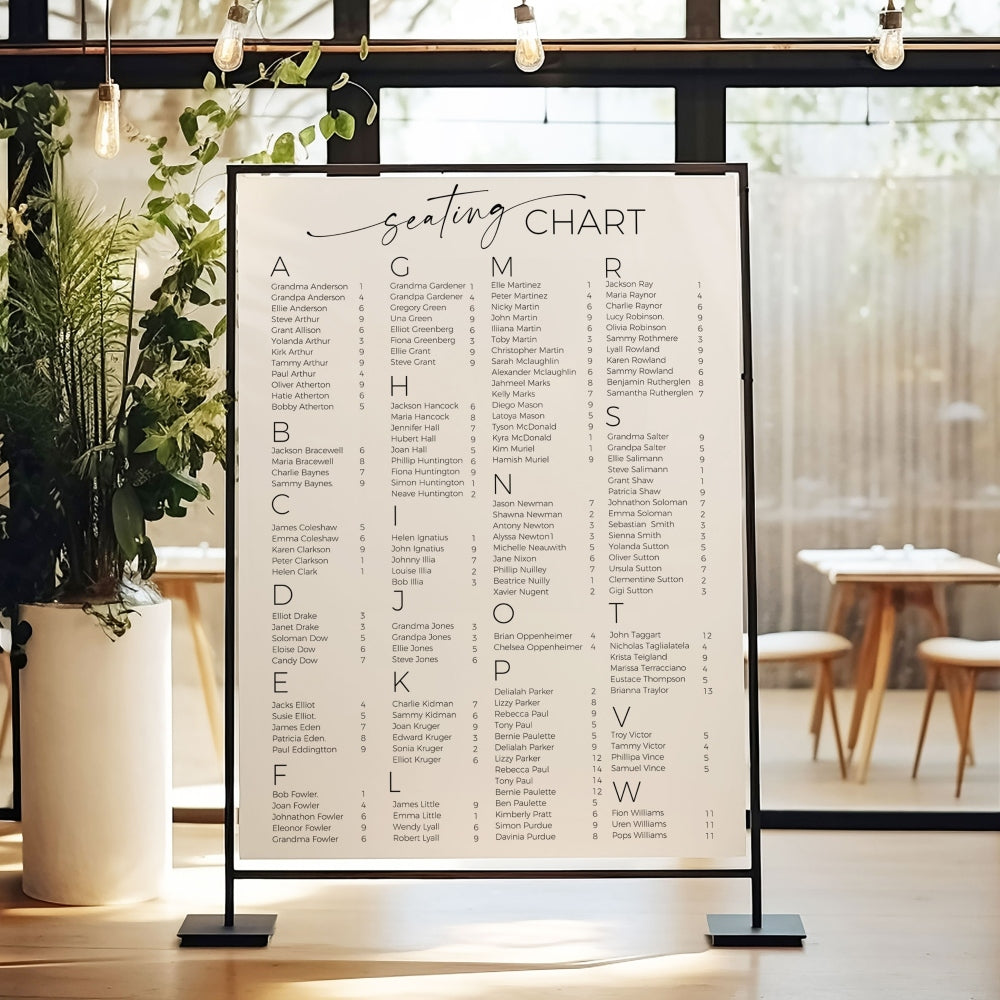 seating CHART
A
Grandma Anderson 1
Grandpa Anderson 4
Ellie Anderson 6
Steve Arthur 9
Grant Allison 6
Yolanda Arthur 3
Kirk Arthur 9
Tammy Arthur 9
Paul Arthur 4
Oliver Atherton 9
Hatie Atherton 6
Bobby Atherton 5
B
Jackson Bracewell 6
Maria Bracewell 8
Charlie Baynes 7
Sammy Baynes. 9
C
James Coleshaw 5
Emma Coleshaw 6
Karen Clarkson 9
Peter Clarkson 1
Helen Clark 1
D
Elliot Drake 3
Janet Drake 3
Soloman Dow 5
Eloise Dow 6
Candy Dow 7
E
Jacks Elliot 4
Susie Elliot. 5
James Eden 7
Patricia Eden. 8
Paul Eddingtton 9
F
Bob Fowler. 1
Joan Fowler 4
Johnathon Fowler 6
Eleonor Fowler 9
Grandma Fowler 6
G
Grandma Gardener 1
Grandpa Gardener 4
Gregory Green 6
Una Green 9
Elliot Greenberg 6
Fiona Greenberg 3
Ellie Grant 9
Steve Grant 9
H
Jackson Hancock 6
Maria Hancock 8
Jennifer Hall 7
Hubert Hall 9
Joan Hall 5
Phillip Huntington 6
Fiona Huntington 9
Simon Huntington 1
Neave Huntington 2
I
Helen Ignatius 1
John Ignatius 9
Johnny Illia 7
Louise Illia 2
Bob Illia 3
J
Grandma Jones 3
Grandpa Jones 3
Ellie Jones 5
Steve Jones 6
K
Charlie Kidman 7
Sammy Kidman 6
Joan Kruger 9
Edward Kruger 3
Sonia Kruger 2
Elliot Kruger 6
L
James Little 9
Emma Little 1
Wendy Lyall 6
Robert Lyall 9
M
Elle Martinez 1
Peter Martinez 4
Nicky Martin 6
John Martin 9
Illiana Martin 6
Toby Martin 3
Christopher Martin 9
Sarah Mclaughlin 9
Alexander Mclaughlin 6
Jahmeel Marks 8
Kelly Marks 7
Diego Mason 9
Latoya Mason 5
Tyson McDonald 9
Kyra McDonald 1
Kim Muriel 1
Hamish Muriel 9
N
Jason Newman 7
Shawna Newman 2
Antony Newton 3
Alyssa Newton1 3
Michelle Neauwith 5
Jane Nixon 6
Phillip Nuilley 7
Beatrice Nuilly 1
Xavier Nugent 2
O
Brian Oppenheimer 4
Chelsea Oppenheimer 4
P
Delialah Parker 2
Lizzy Parker 8
Rebecca Paul 9
Tony Paul 5
Bernie Paulette 5
Delialah Parker 9
Lizzy Parker 12
Rebecca Paul 14
Tony Paul 14
Bernie Paulette 12
Ben Paulette 5
Kimberly Pratt 6
Simon Purdue 9
Davinia Purdue 8
R
Jackson Ray 1
Maria Raynor 4
Charlie Raynor 6
Lucy Robinson. 9
Olivia Robinson 6
Sammy Rothmere 3
Lyall Rowland 9
Karen Rowland 9
Sammy Rowland 6
Benjamin Rutherglen 8
Samantha Rutherglen 7
S
Grandma Salter 9
Grandpa Salter 5
Ellie Salimann 9
Steve Salimann 1
Grant Shaw 1
Patricia Shaw 9
Johnathon Soloman 7
Emma Soloman 2
Sebastian Smith 3
Sienna Smith 3
Yolanda Sutton 5
Oliver Sutton 6
Ursula Sutton 7
Clementine Sutton 2
Gigi Sutton 3
T
John Taggart 12
Nicholas Taglialatela 4
Krista Teigland 9
Marissa Terracciano 4
Eustace Thompson 5
Brianna Traylor 13
V
Troy Victor 5
Tammy Victor 4
Phillipa Vince 5
Samuel Vince 5
W
Fion Williams 11
Uren Williams 11
Pops Williams 11